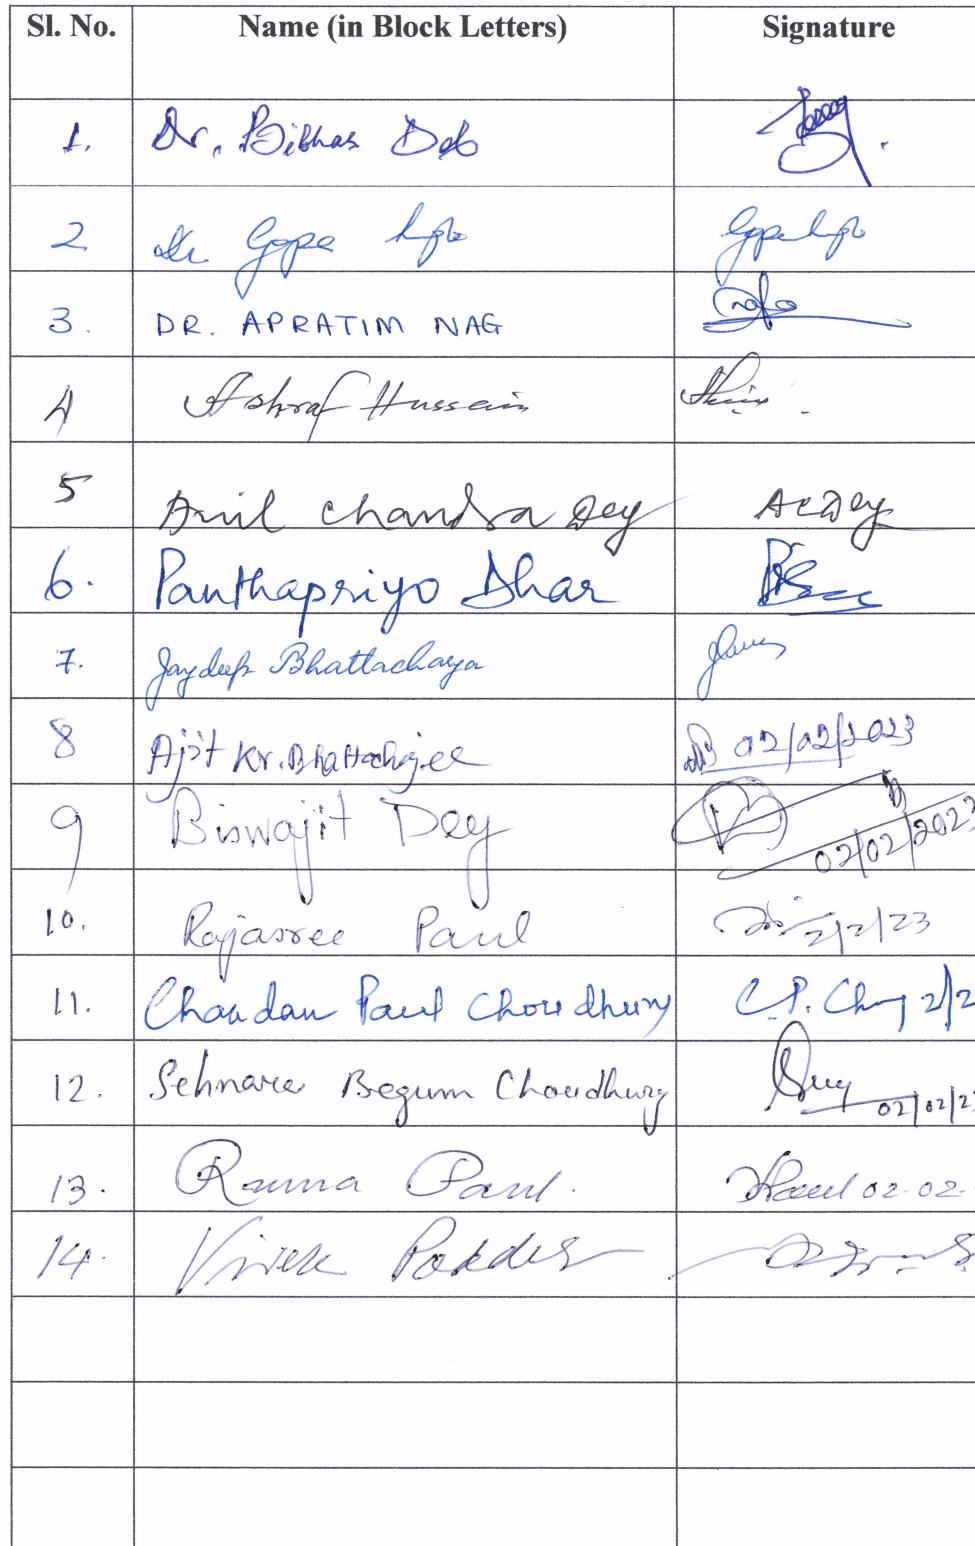 Sl. No. Name (in Block Letters) Signature
1. Dr. Bibhas Deb
2 Dr. Gopa
3. DR. APRATIM NAG
4 Ashraf Hussain
5 Anil Chandra Dey AcDey
6. Panthapriyo Dhar
7. Jaydeep Bhattacharya
8 Ajit Kr. Bhattacharjee 02/02/2023
9 Biswajit Dey 02/02/2023
10. Rajasree Paul 2/2/23
11. Chandan Paul Choudhury C.P. 2/2
12. Sehnara Begum Choudhury 02/02/23
13. Ruma Paul. Paul 02.02.
14. Vivek Poddar